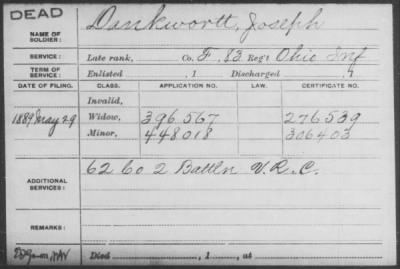 DEAD
NAME OF SOLDIER: Dankwortt, Joseph
SERVICE: Late rank, Co. F, 83 Reg't Ohio Inf
TERM OF SERVICE: Enlisted , 1 Discharged , 1
DATE OF FILING. CLASS. APPLICATION NO. LAW. CERTIFICATE NO.
Invalid,
1889 May 29 Widow, 396567 276539
Minor, 448018 306403
ADDITIONAL SERVICES: 62 Co 2 Battln V.R.C.
REMARKS:
Died , 1 , at